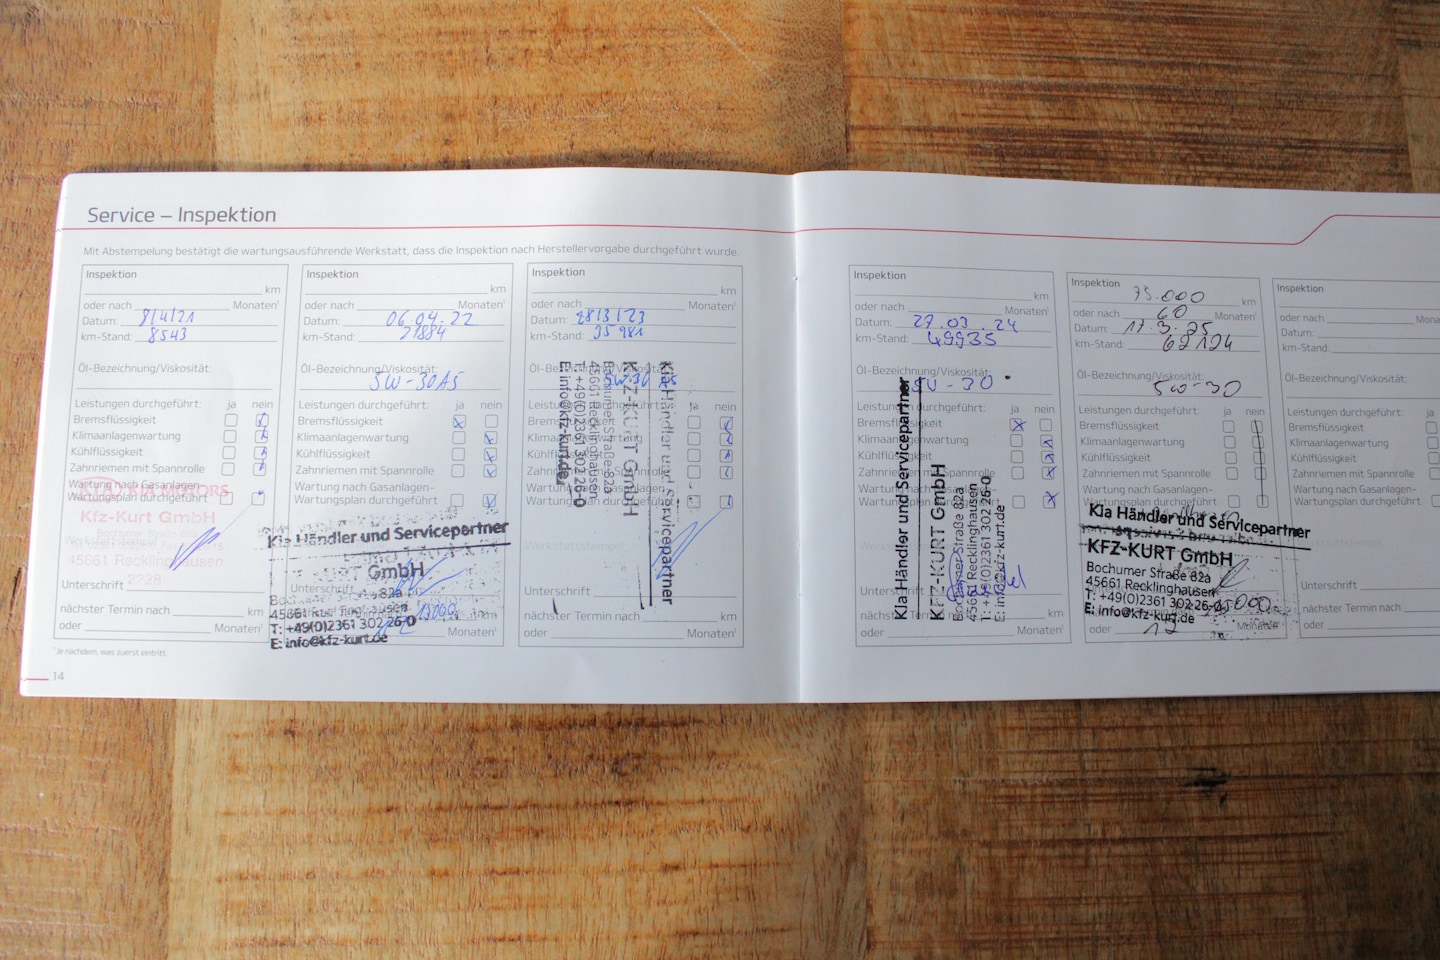 Service – Inspektion
Mit Abstempelung bestätigt die wartungsausführende Werkstatt, dass die Inspektion nach Herstellervorgabe durchgeführt wurde.
Inspektion
km
oder nach Monaten¹
Datum: 8/4/21
km-Stand: 8543
Öl-Bezeichnung/Viskosität:
Leistungen durchgeführt: ja nein
Bremsflüssigkeit
Klimaanlagenwartung
Kühlflüssigkeit
Zahnriemen mit Spannrolle
Wartung nach Gasanlagen-
Wartungsplan durchgeführt
KIA MOTORS
Kfz-Kurt GmbH
45661 Recklinghausen
Unterschrift
nächster Termin nach km
oder Monaten¹
Inspektion
km
oder nach Monaten¹
Datum: 06.04.22
km-Stand: 21884
Öl-Bezeichnung/Viskosität:
5W-30 A5
Leistungen durchgeführt: ja nein
Bremsflüssigkeit
Klimaanlagenwartung
Kühlflüssigkeit
Zahnriemen mit Spannrolle
Wartung nach Gasanlagen-
Wartungsplan durchgeführt
Kia Händler und Servicepartner
GmbH
82a
45661 Recklinghausen
T: +49(0)2361 302 26-0
E: info@kfz-kurt.de
15000
12 Monaten¹
Inspektion
km
oder nach Monaten¹
Datum: 28/3/23
km-Stand: 35981
Öl-Bezeichnung/Viskosität:
5W-30 A5
Leistungen durchgeführt: nein
Bremsflüssigkeit
Klimaanlagenwartung
Kühlflüssigkeit
Zahnriemen mit Spannrolle
Wartung nach Gasanlagen-
Wartungsplan durchgeführt
Kia Händler und Servicepartner
KFZ-KURT GmbH
Bochumer Straße 82a
45661 Recklinghausen
T: +49(0)2361 302 26-0
E: info@kfz-kurt.de
Werkstattstempel
Unterschrift
nächster Termin nach km
oder Monaten¹
¹Je nachdem, was zuerst eintritt.
14
Inspektion
km
oder nach Monaten¹
Datum: 27.03.24
km-Stand: 49935
Öl-Bezeichnung/Viskosität:
5W-30
Leistungen durchgeführt: ja nein
Bremsflüssigkeit
Klimaanlagenwartung
Kühlflüssigkeit
Zahnriemen mit Spannrolle
Wartung nach Gasanlagen-
Wartungsplan durchgeführt
Kia Händler und Servicepartner
KFZ-KURT GmbH
Bochumer Straße 82a
45661 Recklinghausen
T: +49(0)2361 302 26-0
E: info@kfz-kurt.de
Unterschrift
nächster Termin nach km
oder Monaten¹
Inspektion 75.000 km
oder nach 60 Monaten¹
Datum: 17.3.25
km-Stand: 62124
Öl-Bezeichnung/Viskosität:
5W-30
Leistungen durchgeführt: ja nein
Bremsflüssigkeit
Klimaanlagenwartung
Kühlflüssigkeit
Zahnriemen mit Spannrolle
Wartung nach Gasanlagen-
Wartungsplan durchgeführt
Kia Händler und Servicepartner
KFZ-KURT GmbH
Bochumer Straße 82a
45661 Recklinghausen
T: +49(0)2361 302 26-0
E: info@kfz-kurt.de
oder 12 Monaten
Inspektion
oder nach
Datum:
km-Stand:
Öl-Bezeichnung/Viskosität:
Leistungen durchgeführt: ja
Bremsflüssigkeit
Klimaanlagenwartung
Kühlflüssigkeit
Zahnriemen mit Spannrolle
Wartung nach Gasanlagen-
Wartungsplan durchgeführt
Unterschrift
nächster Termin nach
oder